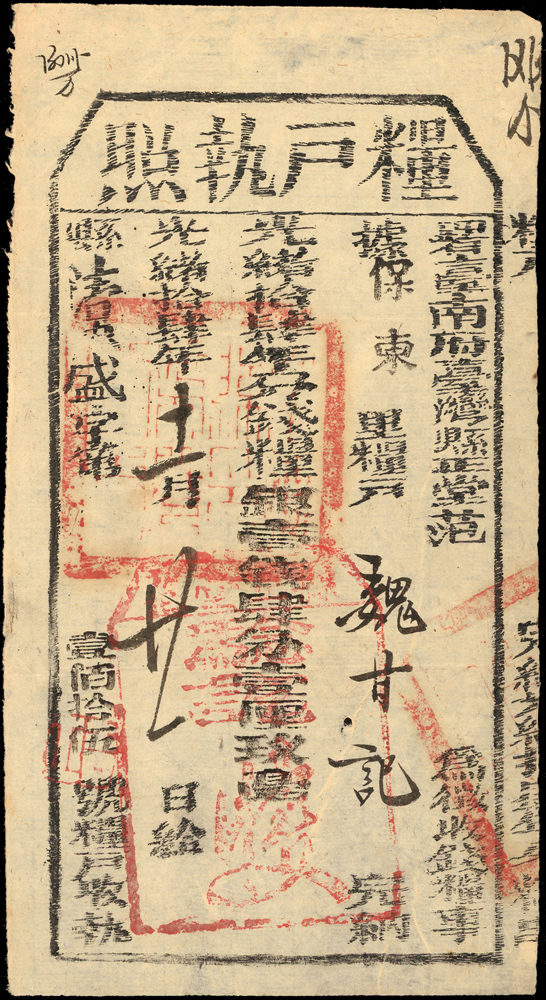 糧戶執照
署臺南府臺灣縣正堂范 為徵收錢糧事
據保東里糧戶魏甘記完納
光緒拾肆年分錢糧銀壹錢肆分壹厘玖毫
光緒拾肆年十一月廿日給
縣 盛字第壹佰拾伍號糧戶收執
糧戶